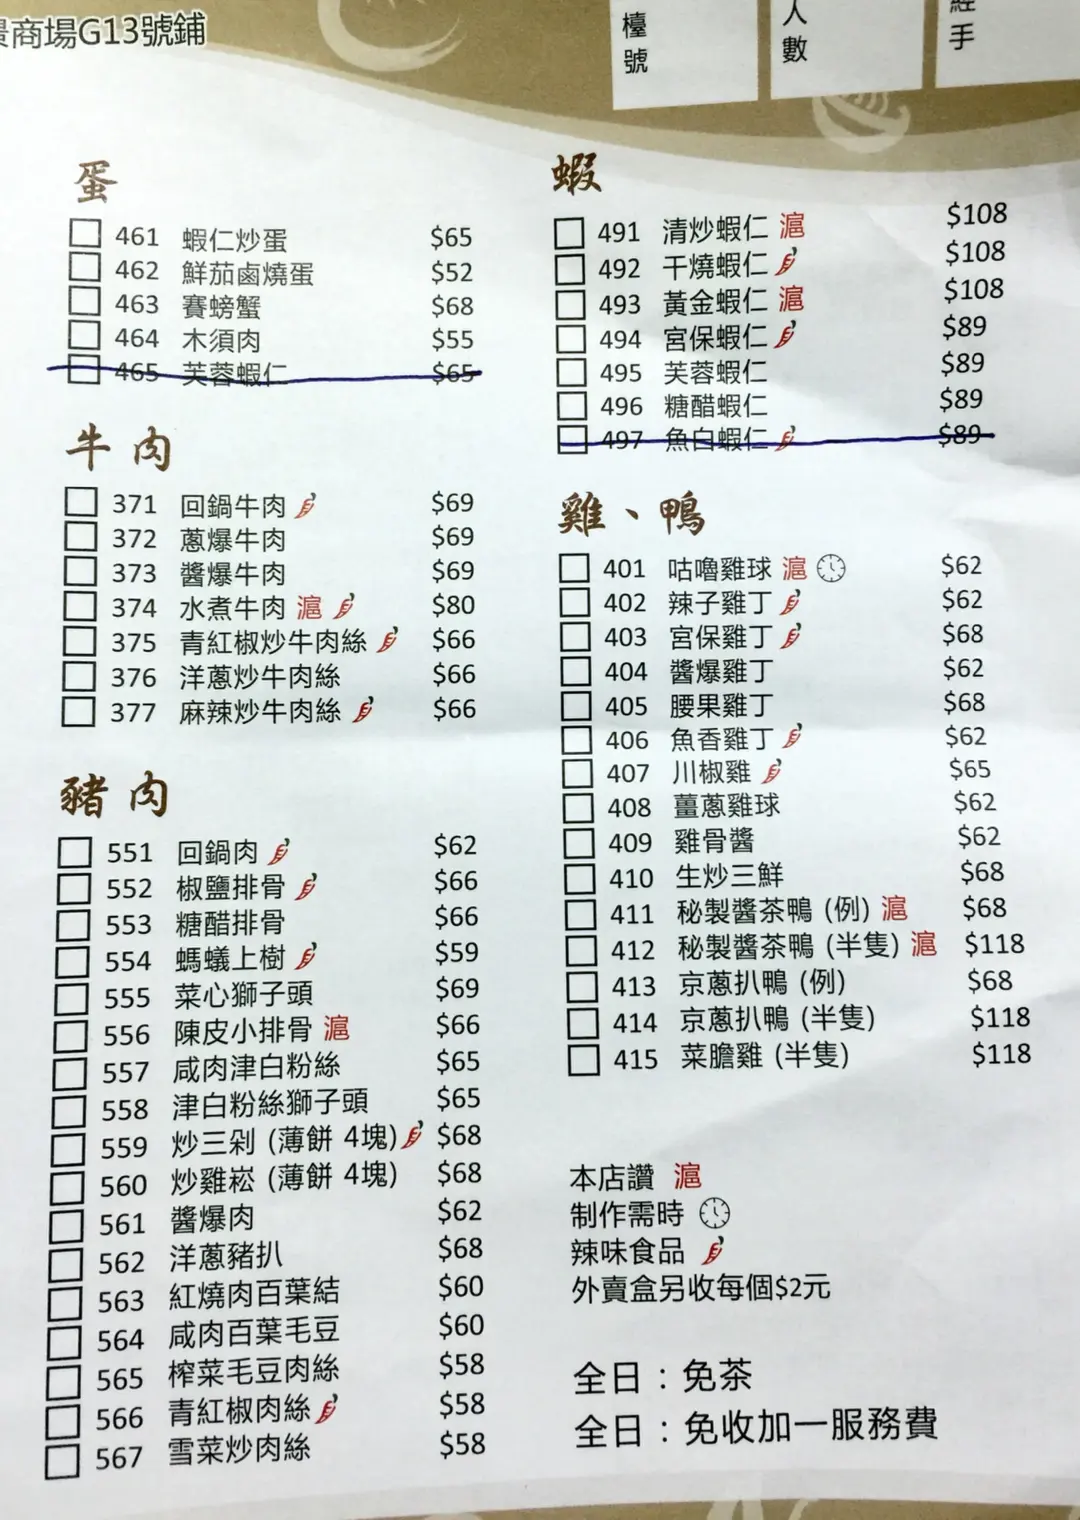 景商場G13號鋪
檯號
人數
經手
蛋
461 蝦仁炒蛋 $65
462 鮮茄鹵燒蛋 $52
463 賽螃蟹 $68
464 木須肉 $55
465 芙蓉蝦仁 $65
牛肉
371 回鍋牛肉 $69
372 蔥爆牛肉 $69
373 醬爆牛肉 $69
374 水煮牛肉 滬 $80
375 青紅椒炒牛肉絲 $66
376 洋蔥炒牛肉絲 $66
377 麻辣炒牛肉絲 $66
豬肉
551 回鍋肉 $62
552 椒鹽排骨 $66
553 糖醋排骨 $66
554 螞蟻上樹 $59
555 菜心獅子頭 $69
556 陳皮小排骨 滬 $66
557 咸肉津白粉絲 $65
558 津白粉絲獅子頭 $65
559 炒三剁 (薄餅 4塊) $68
560 炒雞崧 (薄餅 4塊) $68
561 醬爆肉 $62
562 洋蔥豬扒 $68
563 紅燒肉百葉結 $60
564 咸肉百葉毛豆 $60
565 榨菜毛豆肉絲 $58
566 青紅椒肉絲 $58
567 雪菜炒肉絲 $58
蝦
491 清炒蝦仁 滬 $108
492 干燒蝦仁 $108
493 黃金蝦仁 滬 $108
494 宮保蝦仁 $89
495 芙蓉蝦仁 $89
496 糖醋蝦仁 $89
497 魚白蝦仁 $89
雞、鴨
401 咕嚕雞球 滬 $62
402 辣子雞丁 $62
403 宮保雞丁 $68
404 醬爆雞丁 $62
405 腰果雞丁 $68
406 魚香雞丁 $62
407 川椒雞 $65
408 薑蔥雞球 $62
409 雞骨醬 $62
410 生炒三鮮 $68
411 秘製醬茶鴨 (例) 滬 $68
412 秘製醬茶鴨 (半隻) 滬 $118
413 京蔥扒鴨 (例) $68
414 京蔥扒鴨 (半隻) $118
415 菜膽雞 (半隻) $118
本店讚 滬
制作需時
辣味食品
外賣盒另收每個$2元
全日：免茶
全日：免收加一服務費